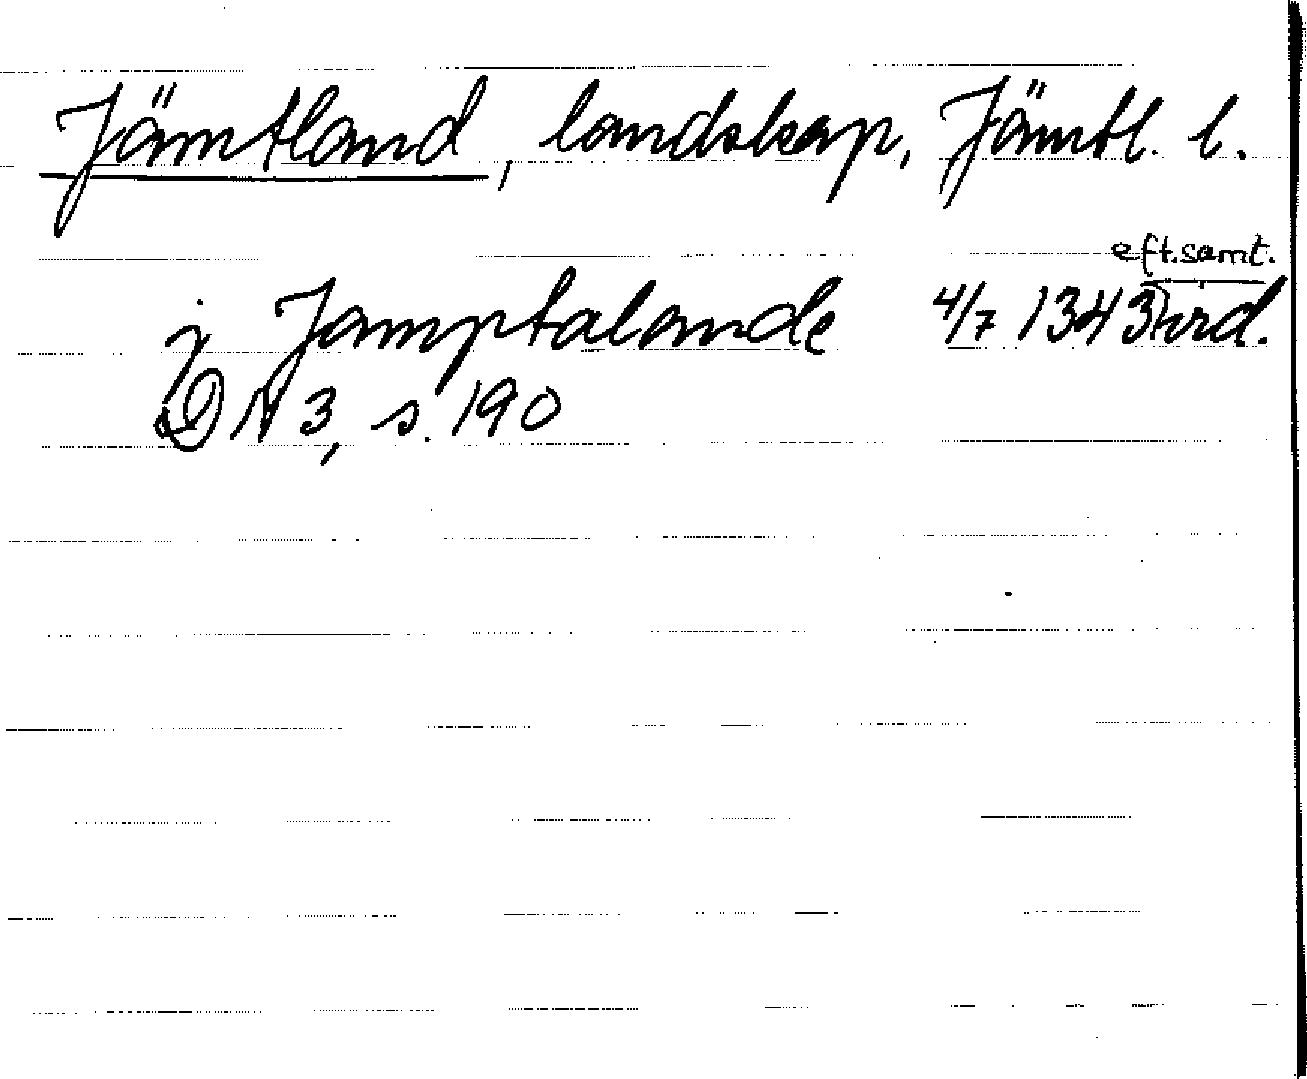 Jämtland, landskap, Jämtl. l.
eft. samt.
j Jamptalande 4/7 1343 vid.
DN 3, s. 190